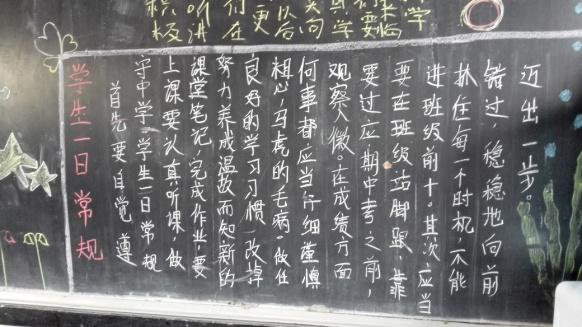 学生一日常规
首先要自觉遵
守中学学生一日常规
上课要认真听课,做
课堂笔记,完成作业,要
努力养成温故而知新的
良好的学习习惯,改掉
粗心,马虎的毛病。做任
何事都应当仔细谨慎
观察入微。在成绩方面
要过应期中考之前,
要在班级站脚跟,靠
进班级前十。其次,应当
抓住每一个时机,不能
错过,稳稳地向前
迈出一步。